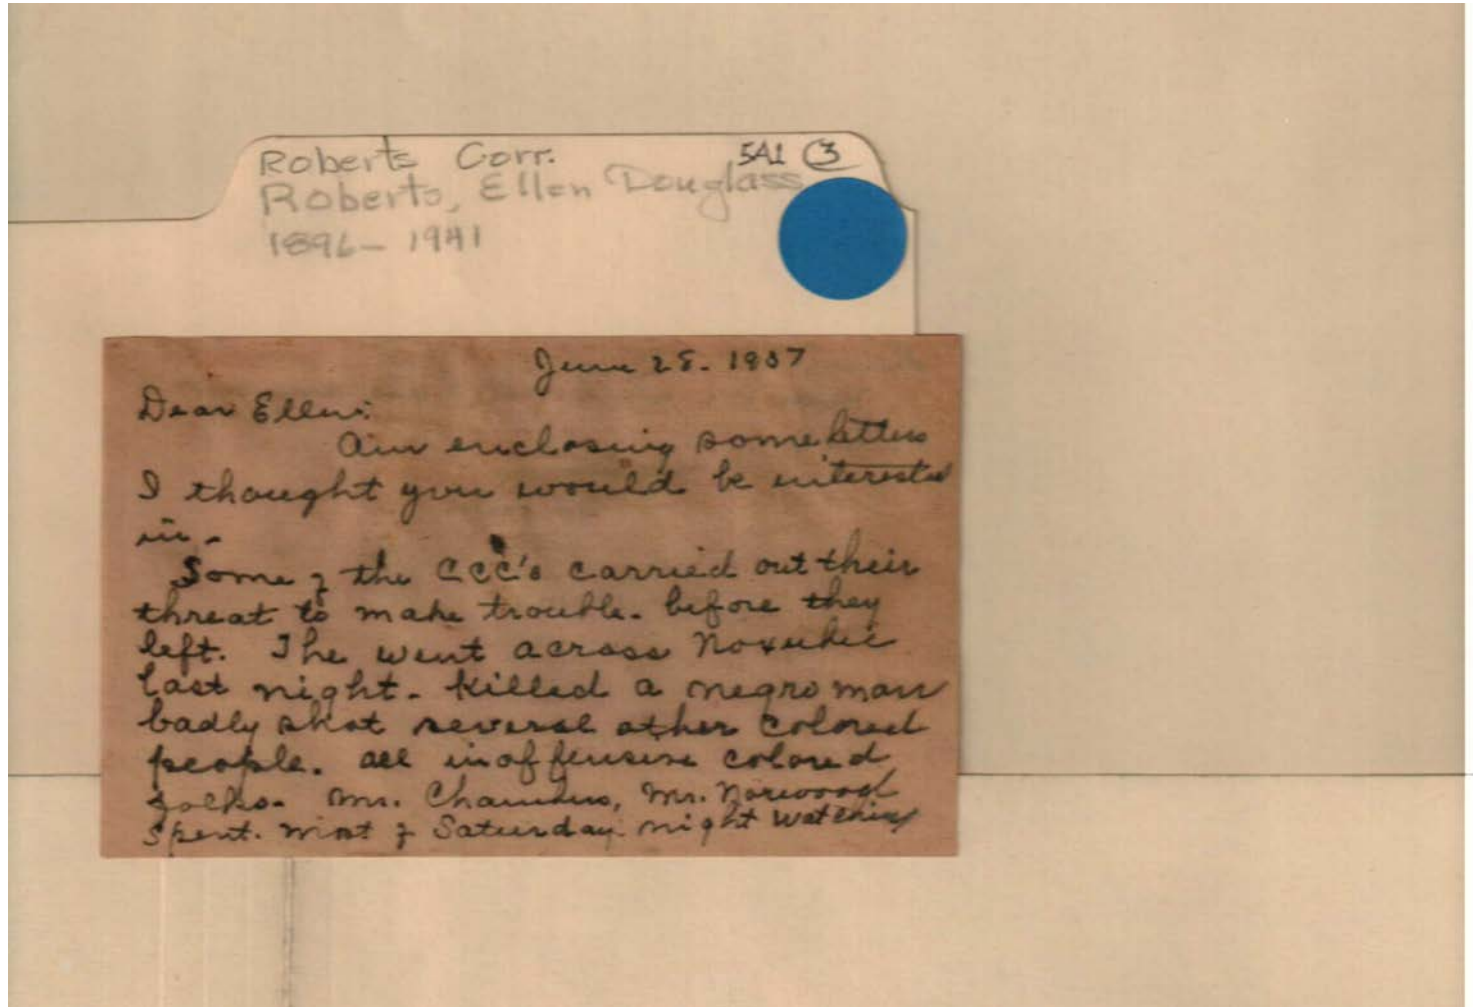 Roberts Corr. 5A1 3
Roberts, Ellen Douglass
1896- 1941
June 28. 1937
Dear Ellen:
Am enclosing some letters
I thought you would be interested
in.
Some of the CCC's carried out their
threat to make trouble. before they
left. The went across Noxubee
last night. Killed a negro man
badly shot several other colored
people. all inoffensive colored
folks. Mr. Chambers, Mr. Norwood
spent. most of Saturday night watching